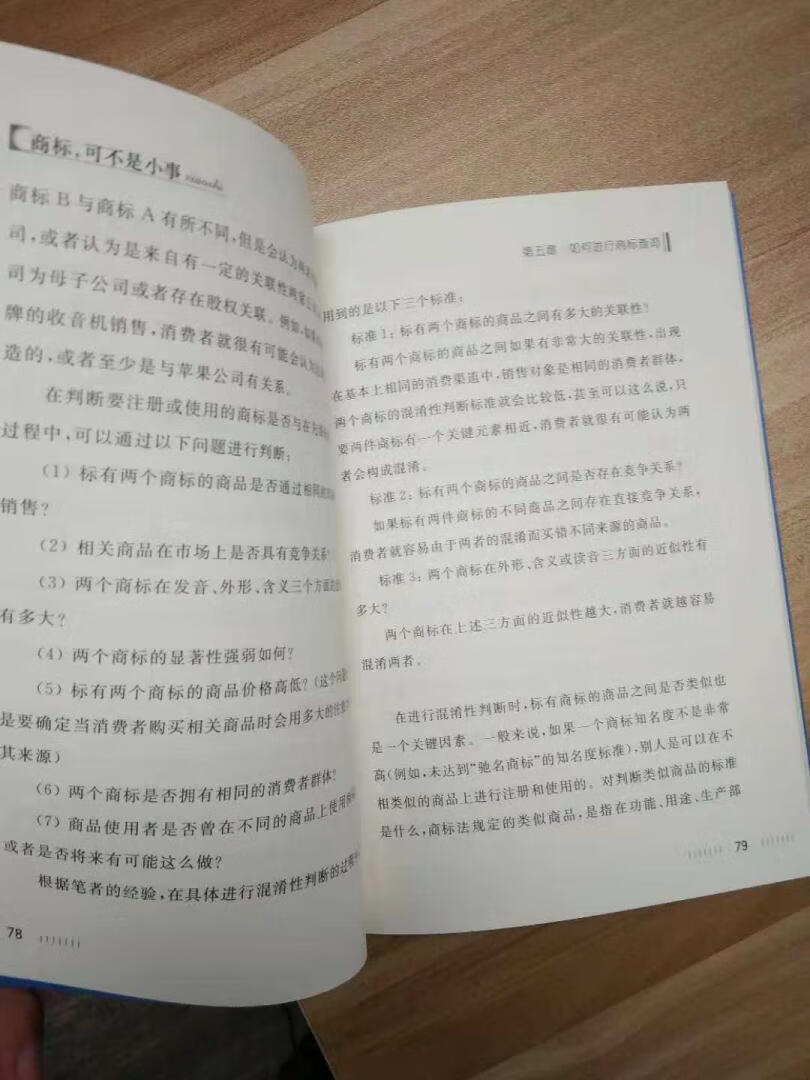 商标，可不是小事
商标 B 与商标 A 有所不同，但是会认为
司，或者认为是来自有一定的关联性
司为母子公司或者存在股权关联。例如，
牌的收音机销售，消费者就很有可能会认为
造的，或者至少是与苹果公司有关系。
在判断要注册或使用的商标是否与在先
过程中，可以通过以下问题进行判断：
（1）标有两个商标的商品是否通过相同的
销售？
（2）相关商品在市场上是否具有竞争关系？
（3）两个商标在发音、外形、含义三个方面
有多大？
（4）两个商标的显著性强弱如何？
（5）标有两个商标的商品价格高低？（这个问题
是要确定当消费者购买相关商品时会用多大的注意
其来源）
（6）两个商标是否拥有相同的消费者群体？
（7）商品使用者是否曾在不同的商品上使用
或者是否将来有可能这么做？
根据笔者的经验，在具体进行混淆性判断的过程中
78
第五章 如何进行商标查询
用到的是以下三个标准：
标准 1：标有两个商标的商品之间有多大的关联性？
标有两个商标的商品之间如果有非常大的关联性，出现
在基本上相同的消费渠道中，销售对象是相同的消费者群体，
两个商标的混淆性判断标准就会比较低，甚至可以这么说，只
要两件商标有一个关键元素相近，消费者就很有可能认为两
者会构成混淆。
标准 2：标有两个商标的商品之间是否存在竞争关系？
如果标有两件商标的不同商品之间存在直接竞争关系，
消费者就容易由于两者的混淆而买错不同来源的商品。
标准 3：两个商标在外形、含义或读音三方面的近似性有
多大？
两个商标在上述三方面的近似性越大，消费者就越容易
混淆两者。
在进行混淆性判断时，标有商标的商品之间是否类似也
是一个关键因素。一般来说，如果一个商标知名度不是非常
高（例如，未达到“驰名商标”的知名度标准），别人是可以在不
相类似的商品上进行注册和使用的。对判断类似商品的标准
是什么，商标法规定的类似商品，是指在功能、用途、生产部
79